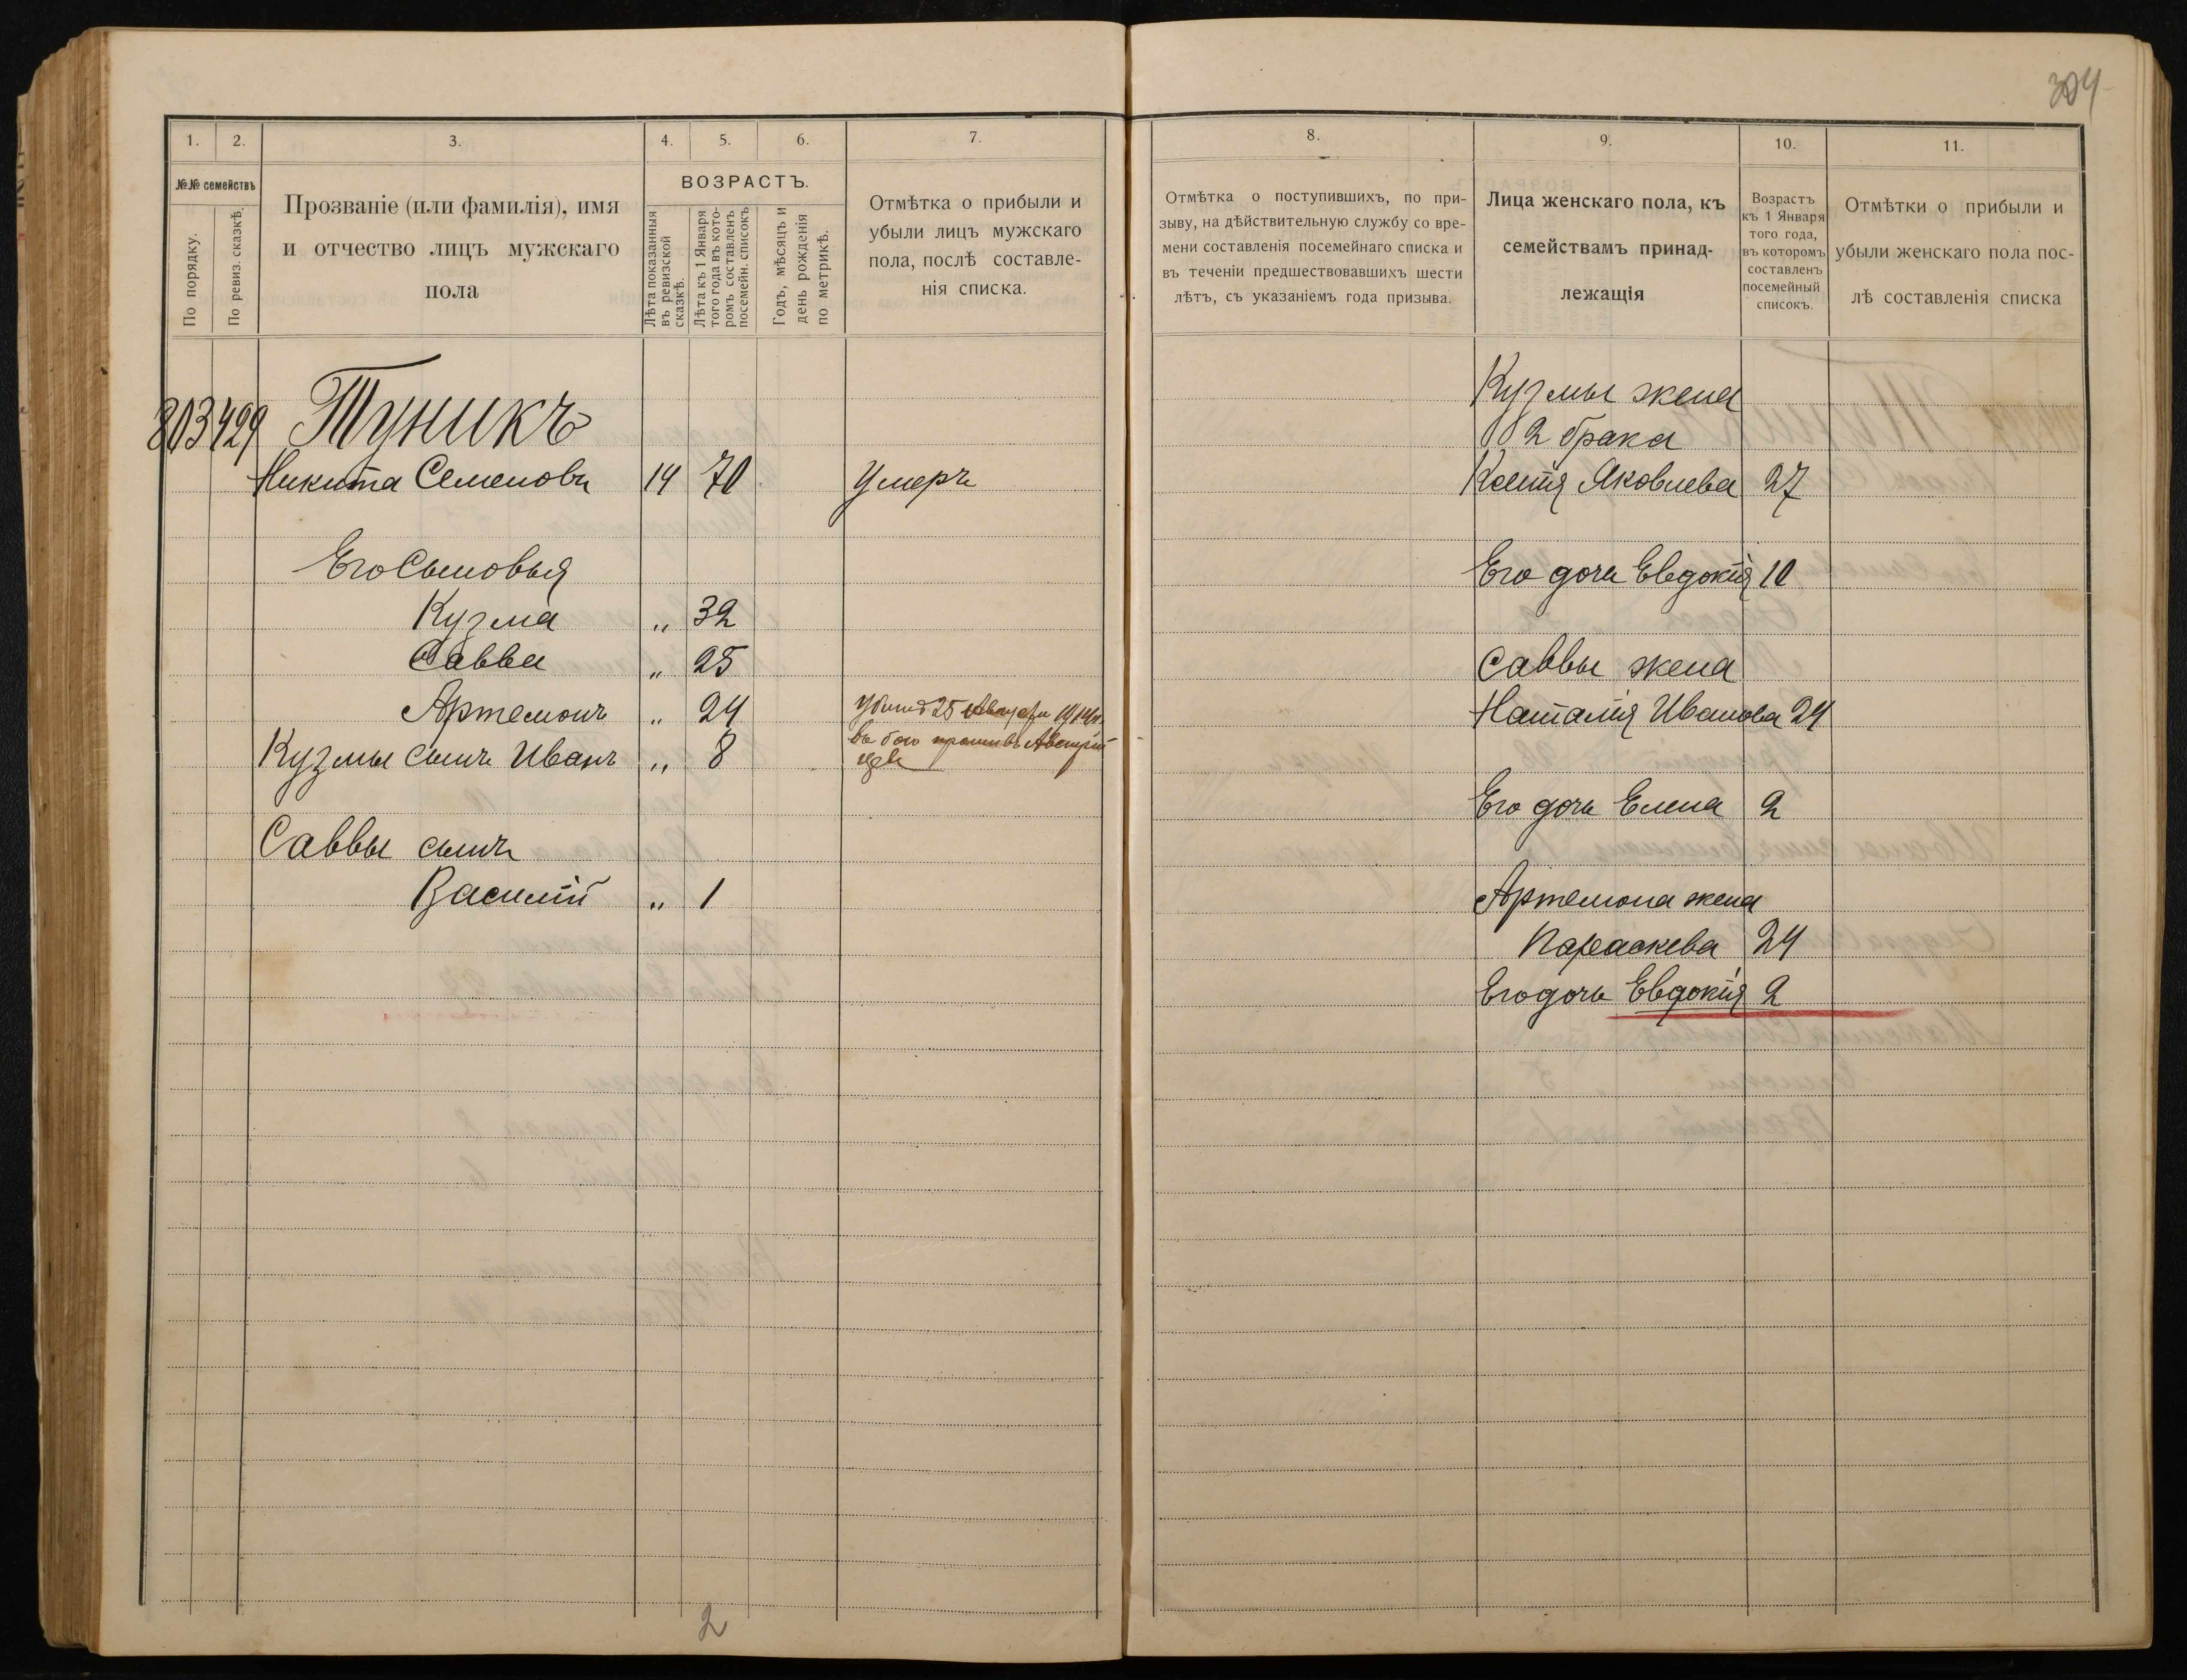 304
1. 2. 3. 4. 5. 6. 7.
№№ семействъ
По порядку.
По ревиз. сказкѣ.
Прозваніе (или фамилія), имя
и отчество лицъ мужскаго
пола
ВОЗРАСТЪ.
Лѣта показанныя
въ ревизской
сказкѣ.
Лѣта къ 1 Января
того года въ кото-
ромъ составленъ
посемейн. списокъ
Годъ, мѣсяцъ и
день рожденія
по метрикѣ.
Отмѣтка о прибыли и
убыли лицъ мужскаго
пола, послѣ составле-
нія списка.
803 429 Туникъ
Никита Семеновъ 14 70 Умеръ
Его Сыновья
Кузма „ 32
Савва „ 25
Артемонъ „ 24
Убитъ 25 Августа 1914 г.
въ бою противъ Австрій
цевъ
Кузмы сынъ Иванъ „ 8
Саввы сынъ
Василій „ 1
2
8. 9. 10. 11.
Отмѣтка о поступившихъ, по при-
зыву, на дѣйствительную службу со вре-
мени составленія посемейнаго списка и
въ теченіи предшествовавшихъ шести
лѣтъ, съ указаніемъ года призыва.
Лица женскаго пола, къ
семействамъ принад-
лежащія
Возрастъ
къ 1 Января
того года,
въ которомъ
составленъ
посемейный
списокъ.
Отмѣтки о прибыли и
убыли женскаго пола пос-
лѣ составленія списка
Кузмы жена
2 брака
Ксенія Яковлева 27
Его дочь Евдокія 10
Саввы жена
Наталія Иванова 24
Его дочь Елена 2
Артемона жена
Параскева 24
Его дочь Евдокія 2